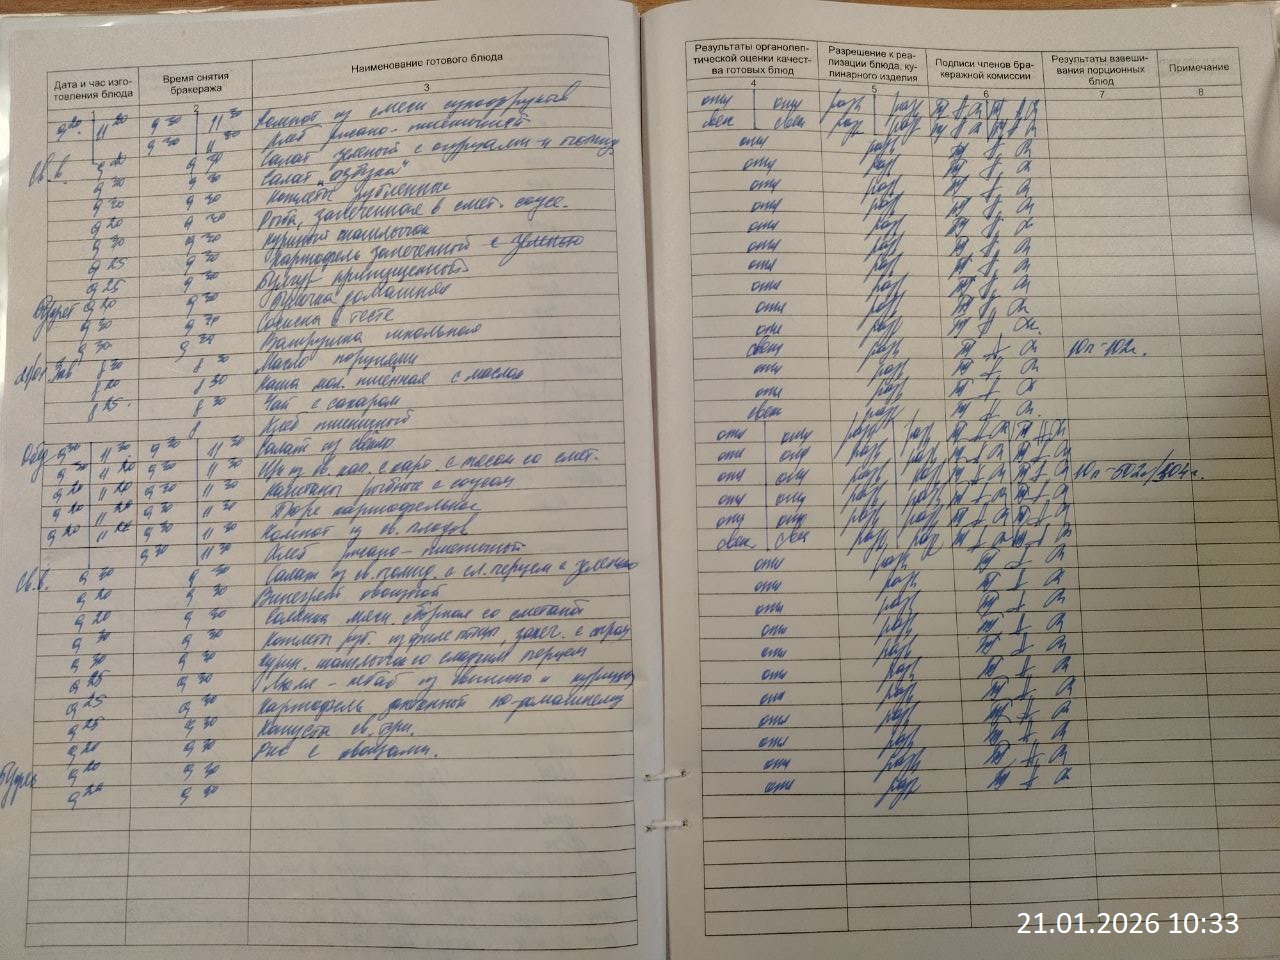 Дата и час изго-
товления блюда
Время снятия
бракеража
Наименование готового блюда
2
3
9 20 11 20 9 30 11 30 Компот из смеси сухофруктов
9 30 11 30 Хлеб ржано-пшеничный
Св.в. 9 20 9 30 Салат зеленый с огурцами и помид.
9 30 9 30 Салат "Азбука"
9 30 9 30 Котлеты рубленные
9 20 9 30 Рыба, запеченная в смет. соусе.
9 30 9 30 Куриный шашлычок
9 25 9 30 Картофель запеченный с зеленью
9 25 9 30 Булгур припущенный
Буфет 9 20 9 30 Булочка домашняя
9 30 9 30 Сосиска в тесте
9 30 9 30 Ватрушка школьная
Зав 8 30 8 30 Масло порциями
8 20 8 30 Каша мол. пшенная с маслом
8 25 8 30 Чай с сахаром
8 Хлеб пшеничный
Обед 9 30 11 30 9 30 11 30 Салат из свёклы
9 30 11 20 9 30 11 30 Щи из св. кап. с карт. с мясом со смет.
9 20 11 20 9 30 11 30 рыбные с соусом
9 20 11 20 9 30 11 30 Пюре картофельное
9 20 11 20 9 30 11 30 Компот из св. плодов
9 30 11 30 Хлеб ржано-пшеничный
Св.в. 9 30 9 30 Салат из св. помид. с сл. перцем с зеленью
9 20 9 30 Винегрет овощной
9 20 9 30 Солянка мясн. сборная со сметаной
9 30 9 30 Котлеты руб. из филе птицы, запеч. с сыром
9 30 9 30 Курин. шашлычок со сладким перцем
9 25 9 30 Люля-кебаб из свинины и курицы
9 25 9 30 Картофель по-домашнему
9 25 9 30 Капуста св. туш.
9 20 9 30 Рис с овощами.
Буфет 9 20 9 30
9 20 9 30
Результаты органолеп-
тической оценки качест-
ва готовых блюд
Разрешение к реа-
лизации блюда, ку-
линарного изделия
Подписи членов бра-
керажной комиссии
Результаты взвеши-
вания порционных
блюд
Примечание
4
5
6
7
8
отл отл разр разр
свеж свеж разр разр
отл разр
отл разр
отл разр
отл разр
отл разр
отл разр
отл разр
отл разр
отл разр
отл разр
свеж разр 10п-102г.
отл разр
отл разр
свеж разр
отл отл разр разр
отл отл разр разр
отл отл разр разр 10п-502г/504г.
отл отл разр разр
отл отл разр разр
свеж свеж разр разр
отл разр
отл разр
отл разр
отл разр
отл разр
отл разр
отл разр
отл разр
отл разр
отл разр
отл разр
21.01.2026 10:33